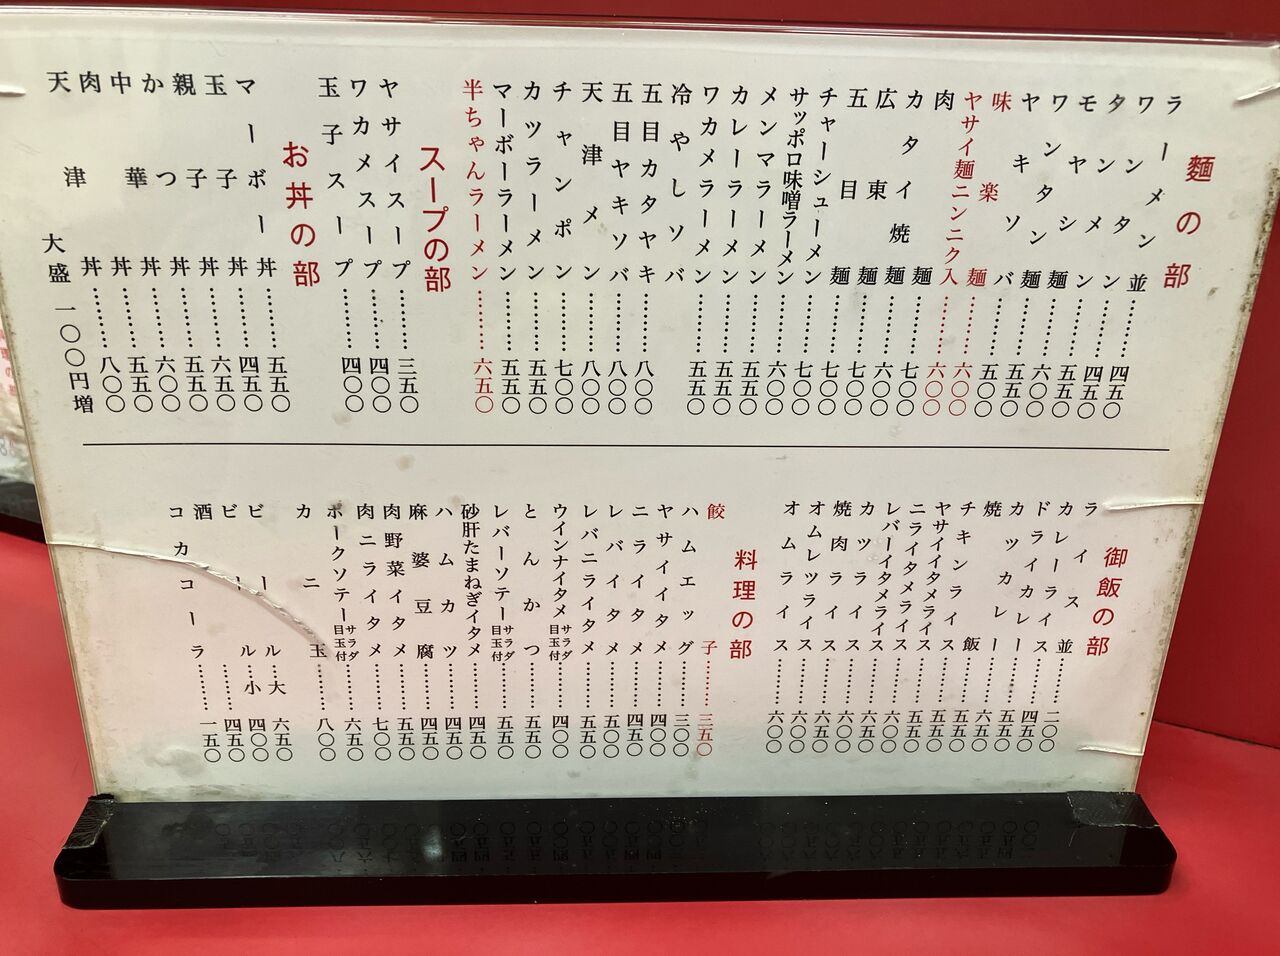 麺の部
ラーメン並………四五〇
ワンタン………四五〇
タンメン………五五〇
モヤシ麺………六〇〇
ワンタン麺………五五〇
ヤキソバ………五〇〇
味楽麺………六〇〇
ヤサイ麺ニンニク入………六〇〇
肉麺………七〇〇
カタイ焼麺………六〇〇
広東麺………七〇〇
五目麺………七〇〇
チャーシューメン………七〇〇
サッポロ味噌ラーメン………六〇〇
メンマラーメン………五五〇
カレーラーメン………五五〇
ワカメラーメン………五五〇
冷やしソバ
五目カタヤキ………八〇〇
五目ヤキソバ………八〇〇
天津メン………八〇〇
チャンポン………七〇〇
カツラーメン………五五〇
マーボーラーメン………五五〇
半ちゃんラーメン………六五〇
スープの部
ヤサイスープ………三五〇
ワカメスープ………四〇〇
玉子スープ………四〇〇
お丼の部
マーボー丼………五五〇
玉子丼………四五〇
親子丼………六五〇
かつ丼………五五〇
中華丼………六〇〇
肉丼………五五〇
天津丼………八〇〇
大盛一〇〇円増
御飯の部
ライス並………二〇〇
カレーライス………四五〇
ドライカレー………五五〇
カツカレー………六五〇
焼飯………五五〇
チキンライス………五五〇
ヤサイイタメライス………五五〇
ニライタメライス………六〇〇
レバーイタメライス………六〇〇
カツライス………六〇〇
焼肉ライス………六五〇
オムレツライス………六〇〇
オムライス………六〇〇
料理の部
餃子………三五〇
ハムエッグ………三〇〇
ヤサイイタメ………四〇〇
ニライタメ………四五〇
レバイタメ………五五〇
レバニライタメ………五五〇
ウインナイタメ サラダ目玉付………四〇〇
とんかつ………五五〇
レバーソテー サラダ目玉付………五五〇
砂肝たまねぎイタメ………四五〇
ハムカツ………四五〇
麻婆豆腐………四五〇
肉野菜イタメ………五五〇
肉ニライタメ………七〇〇
ポークソテー サラダ目玉付………六五〇
カニ玉………八〇〇
ビール大………六五〇
ビール小………四〇〇
酒………四五〇
コカコーラ………一五〇